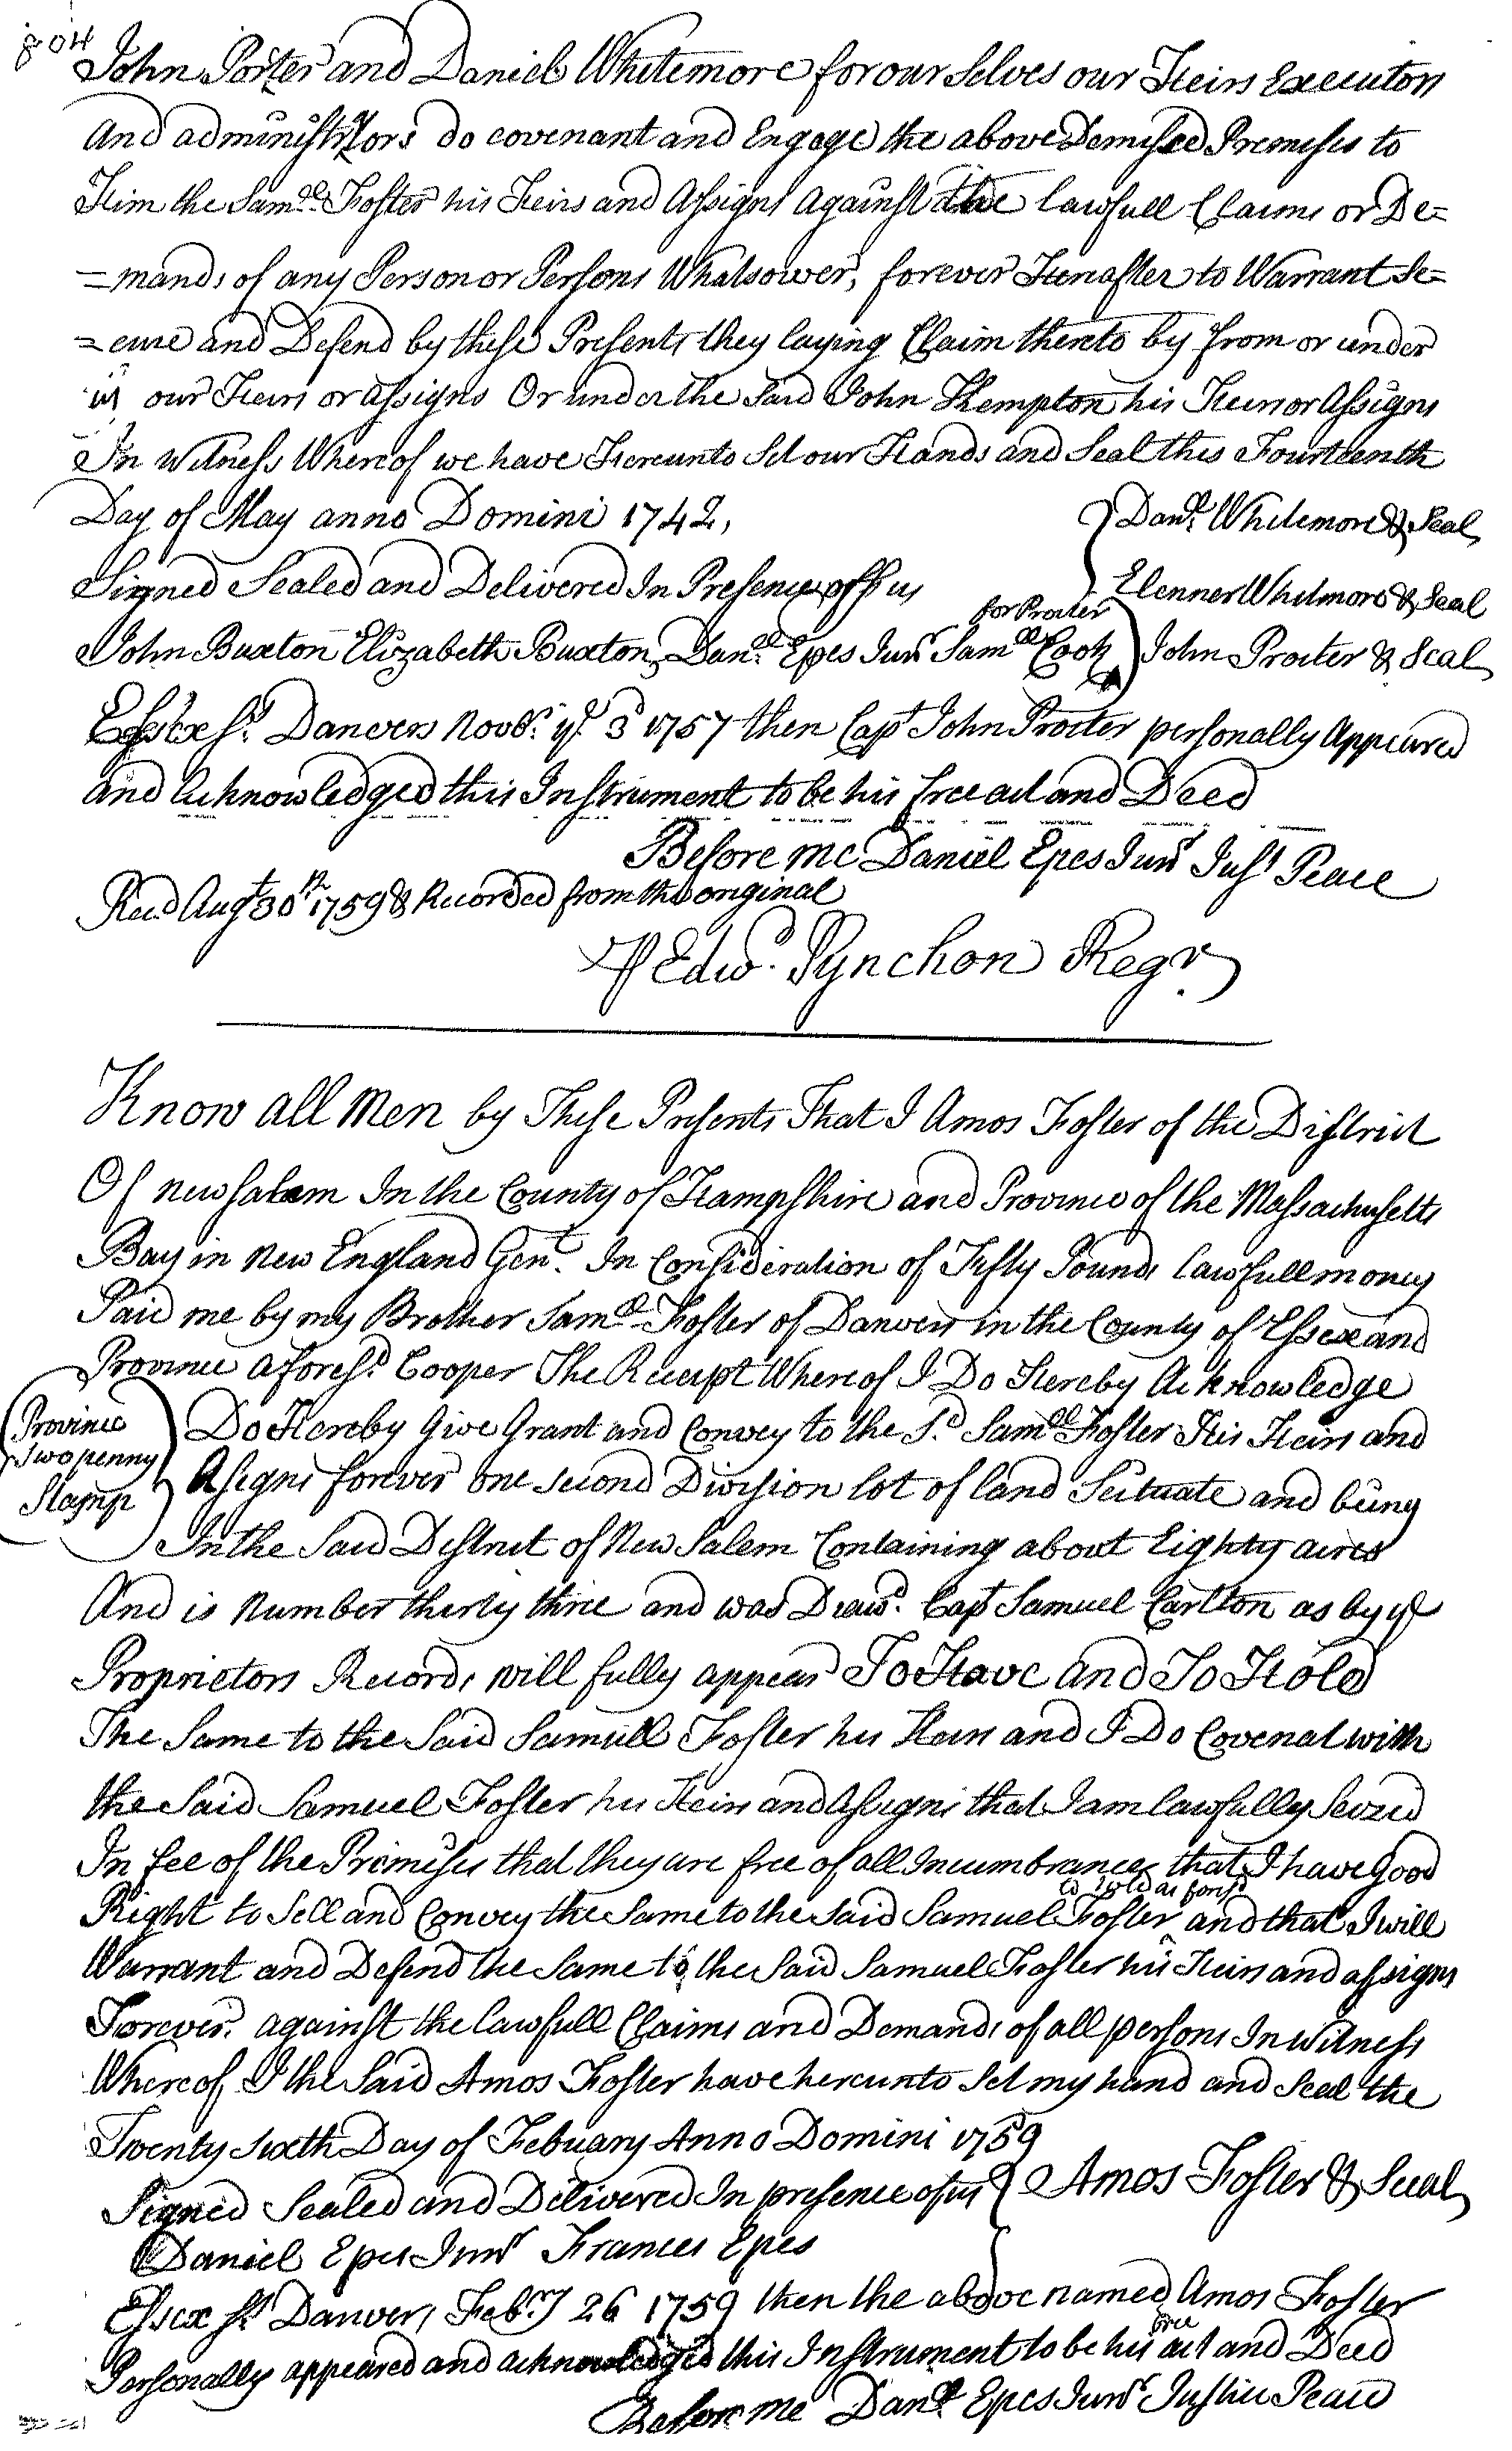 John Porter and Daniel Whitemore for our Selves our Heirs Executors
And administrators do covenant and Engage the above Demised Premises to
Him the Sam.ll Foster his Heirs and Assigns against the lawfull Claims or De=
=mands of any Person or Persons Whatsower, forever Hereafter to Warrant Se=
=cure and Defend by these Presents they laying Claim thereto by from or under
us our Heirs or assigns Or under the said John Kempton his Heirs or Assigns
In Witness Whereof we have Hereunto Set our Hands and Seal this Fourteenth
Day of May anno Domini 1742,
Dan.ll Whitemore & Seal
Signed Sealed and Delivered In Presence off us
Elenner Whitmore & Seal
for Procter
John Buxton Elizabeth Buxton, Dan.ll Epes Junr Sam.ll Cook } John Procter & Seal
Essex Ss. Danvers Novbr. ye. 3 1757 then Capt John Procter personally Appeared
and Acknowledged this Instrument to be his free act and Deed
Before me Daniel Epes Junr Just Peace
Recd Augt 30th 1759 & Recorded from the original
P Edwd. Pynchon Regr.
Know all Men by These Presents That I Amos Foster of the District
Of new salem In the County of Hampshire and Province of the Massachusetts
Bay in New England Gent. In Consideration of Fifty Pounds lawfull money
Paid me by my Brother Sam.ll Foster of Danvers in the County of Essex and
Province aforesd. Cooper The Receipt Whereof I Do Hereby Acknowledge
Province
Two penny
Stamp
Do Hereby Give Grant and Convey to the Sd. Sam.ll Foster His Heirs and
Assigns forever one second Division lot of land Scituate and being
In the Said District of New Salem Containing about Eighty acres
And is Number therty three and was Draw. Capt Samuel Carlton as by ye
Proprietors Records will fully appear To Have and To Hold
The Same to the Said Samuell Foster his Heirs and I Do Covenat with
the Said Samuel Foster his Heirs and Assigns that I am lawfully Seized
In fee of the Premises that they are free of all Incumbrances that I have Good
Right to Sell and Convey the Same to the Said Samuel Foster to Hold as foresd and that I will
Warrant and Defend the Same to the Said Samuel Foster his Heirs and assigns
Forever. against the lawfull Claims and Demands of all persons In Witness
Whereof I the Said Amos Foster have hereunto Set my hand and Seal the
Twenty Sixth Day of Febuary Anno Domini 1759
Signed Sealed and Delivered In presence of us } Amos Foster & Seal
Daniel Epes Junr Frances Epes
Essex Ss Danvers Feb.y 26 1759 then the above named Amos Foster
Personally appeared and acknowledged this Instrument to be his free act and Deed
Before me Dan.ll Epes Junr Justice Peace